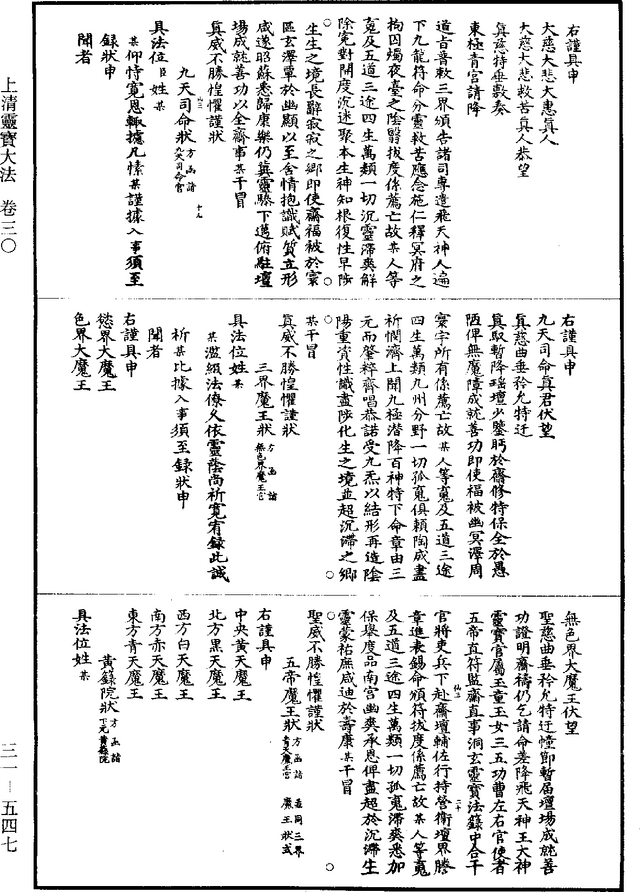 上清靈寶大法 卷三〇
三一－五四七
右謹具申
大慈大悲大惠真人
大慈大悲救苦真人恭望
真慈特垂敷奏
東極青宮請降
道旨普敕三界頒告諸司專遣飛天神人遍
下九龍符命分靈救苦應念施仁釋冥府之
拘囚燭夜臺之陰翳拔度係薦亡故某人等
䰟及五道三途四生萬類一切沉靈滯爽解
除冤對開度沉迷聚本生神知根復性早陟
生生之境長辭寂寂之鄉即使齋福被於寰
區玄澤覃於幽顯以至含情抱識賦質立形
咸遂昭蘇悉歸康樂仍冀靈驂下邁俯駐壇
場成就善功以全齋事某干冒
真威不勝惶懼謹狀
九天司命狀方函諸九天司命官
具法位臣姓某
某仰恃寬恩輙攄凡愫某謹據入事須至
錄狀申
聞者
右謹具申
九天司命真君伏望
真慈曲垂矜允特迂
真馭暫降瑤壇少鑒眄於齋修特保全於愚
陋俾無魔障成就善功即使福被幽冥澤周
寰宇所有係薦亡故某人等䰟及五道三途
四生萬類九州分野一切孤䰟俱賴陶成盡
祈憫濟上開九極潛降百神特下命章由三
元而肇粹齊唱恭諾受九炁以結形再造陰
陽重資性識盡陟化生之境並超沉滯之鄉
某干冒
真威不勝惶懼謹狀
三界魔王狀方函諸無色界魔王官
具法位姓某
某濫綴法僚久依靈蔭尚祈寬宥錄此誠
祈某比據入事須至錄狀申
聞者
右謹具申
慾界大魔王
色界大魔王
無色界大魔王伏望
聖慈曲垂矜允特迂幢節暫屆壇場成就善
功證明齋禱仍乞請命差降飛天神王大神
靈寶官屬玉童玉女三五功曹左右官使者
五帝直符監齋直事洞玄靈寶法籙中合干
官將吏兵下赴齋壇輔佐行持營衛壇界謄
章進表錫命頒符拔度係薦亡故某人等䰟
及五道三途四生萬類一切孤䰟滯爽悉加
保舉度品南宮幽爽承恩俾盡超於沉滯生
靈蒙祐庶咸迪於壽康某干冒
聖威不勝惶懼謹狀
五帝魔王狀方函諸青天魔王官 並同三界魔王狀式
右謹具申
中央黃天魔王
北方黑天魔王
西方白天魔王
南方赤天魔王
東方青天魔王
黃籙院狀方函諸下元黃籙院
具法位姓某